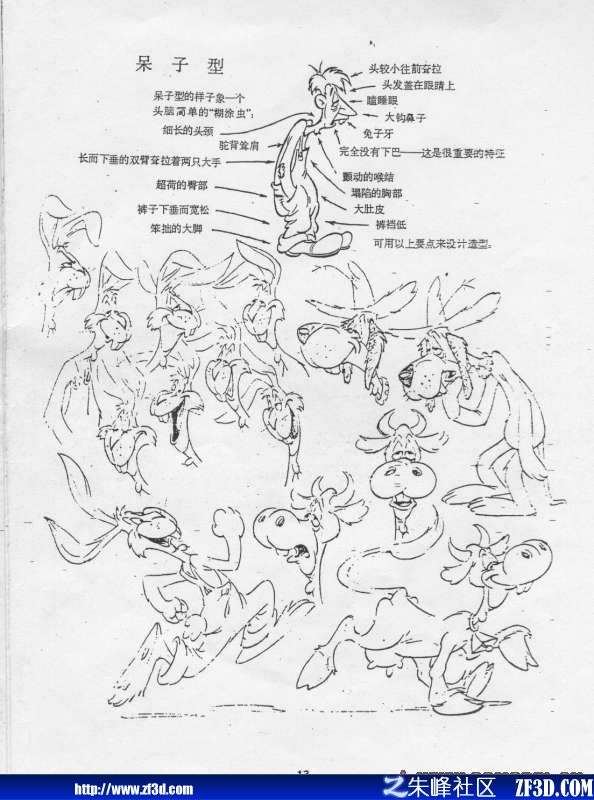 呆子型
呆子型的样子象一个
头脑简单的“糊涂虫”：
细长的头颈
驼背耸肩
长而下垂的双臂耷拉着两只大手
超荷的臀部
裤子下垂而宽松
笨拙的大脚
头较小往前耷拉
头发盖在眼睛上
瞌睡眼
大钩鼻子
兔子牙
完全没有下巴——这是很重要的特征
颤动的喉结
塌陷的胸部
大肚皮
裤裆低
可用以上要点来设计造型。
http://www.zf3d.com
之朱峰社区 ZF3D.COM